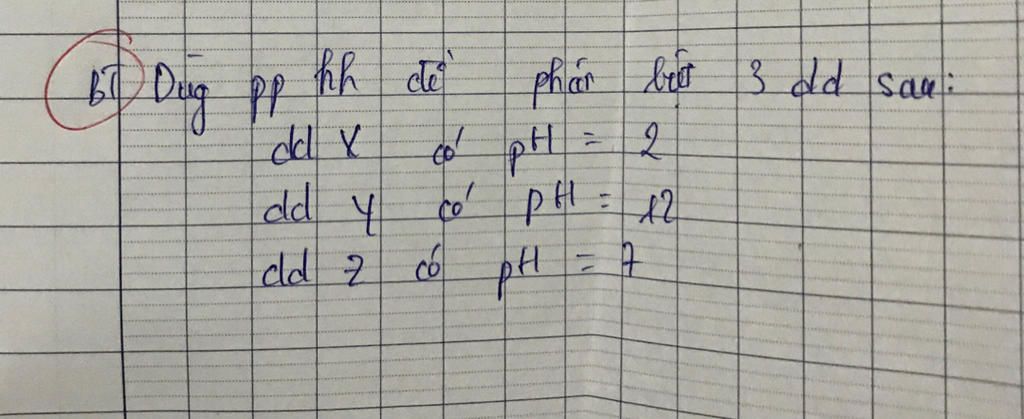 BT Dùg pp hh để phân biệt 3 dd sau:
dd X có pH = 2
dd Y có pH = 12
dd Z có pH = 7